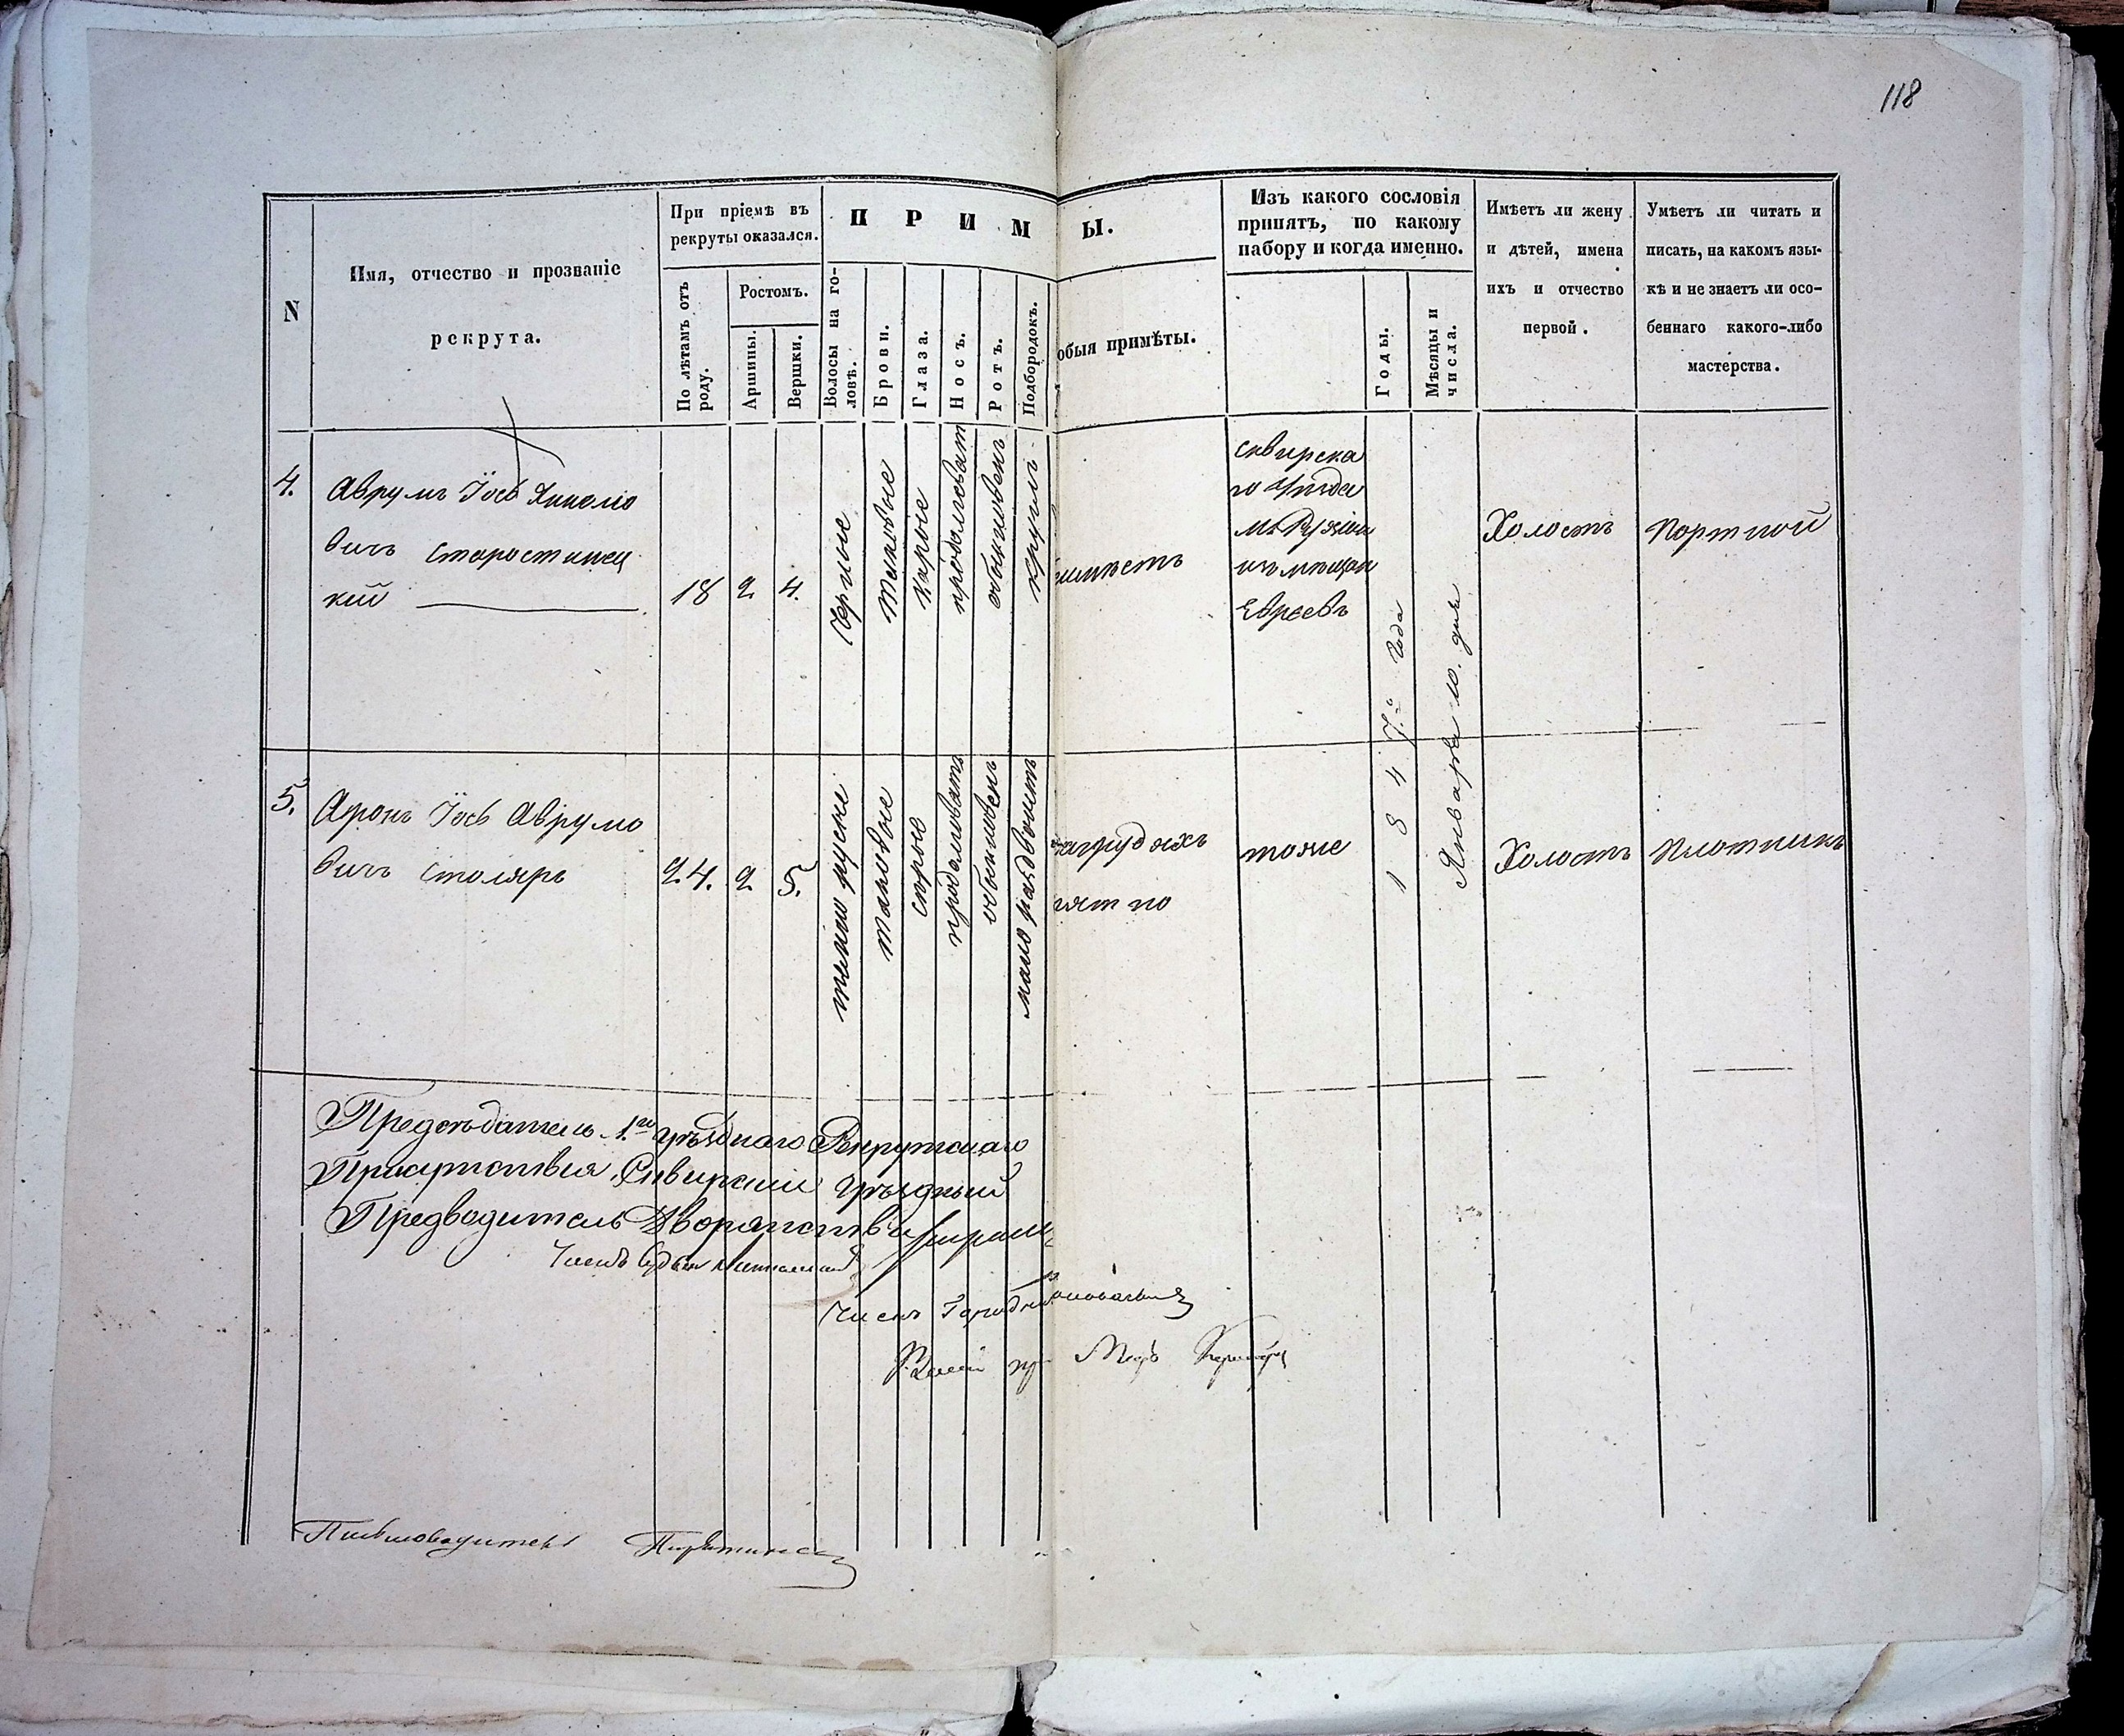 118
N
Имя, отчество и прозваніе
рекрута.
При пріемѣ въ
рекруты оказался.
По лѣтамъ отъ
роду.
Ростомъ.
Аршины.
Вершки.
ПРИМ Ы.
Волосы на го-
ловѣ.
Брови.
Глаза.
Носъ.
Ротъ.
Подбородокъ.
обыя примѣты.
Изъ какого сословія
принятъ, по какому
набору и когда именно.
Годы.
Мѣсяцы и
числа.
Имѣетъ ли жену
и дѣтей, имена
ихъ и отчество
первой.
Умѣетъ ли читать и
писать, на какомъ язы-
кѣ и не знаетъ ли осо-
беннаго какого-либо
мастерства.
4.
Аврумъ Іось
вичъ Старостинец
кій
18
2
4.
Черные
таковые
карые
продолговат
обыкновенъ
кругл
сквирска
го Уѣзда
м. Ружина
изъ мѣщан
Евреевъ
1847.го года
Января 10. дня
Холостъ
Портной
5.
Аронъ Іось Аврумо
вичъ Столяръ
24.
2
5.
темно русые
таковые
сѣрые
продолговатъ
обыкновенъ
мало раздвоистъ
на грудяхъ
ятно
тоже
Холостъ
Плотникъ
Предсѣдатель 1.го Уѣзднаго Рекрутскаго
Присутствія, Сквирскій Уѣздный
Предводитель Дворянства
Членъ
Членъ Городни
Письмоводитель